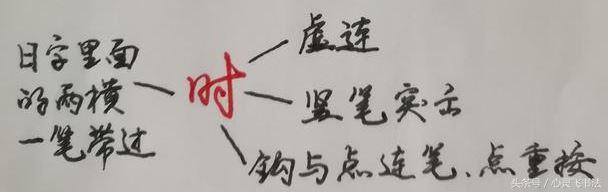 日字里面
的两横
一笔带过
时
虚连
竖笔实
钩与点连笔、点重按
头条号/心灵飞书法